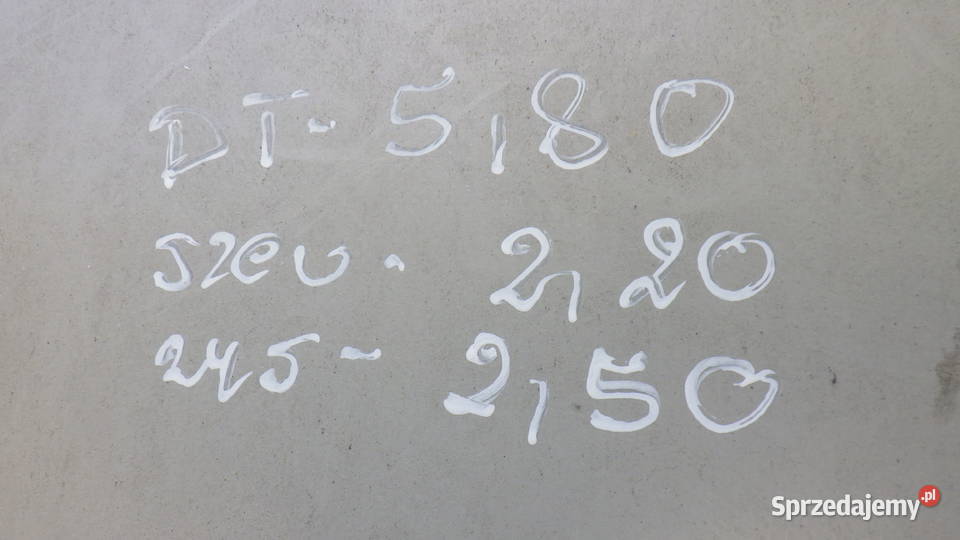 DT - 5,80
szer - 2,20
wys - 2,50
Sprzedajemy.pl